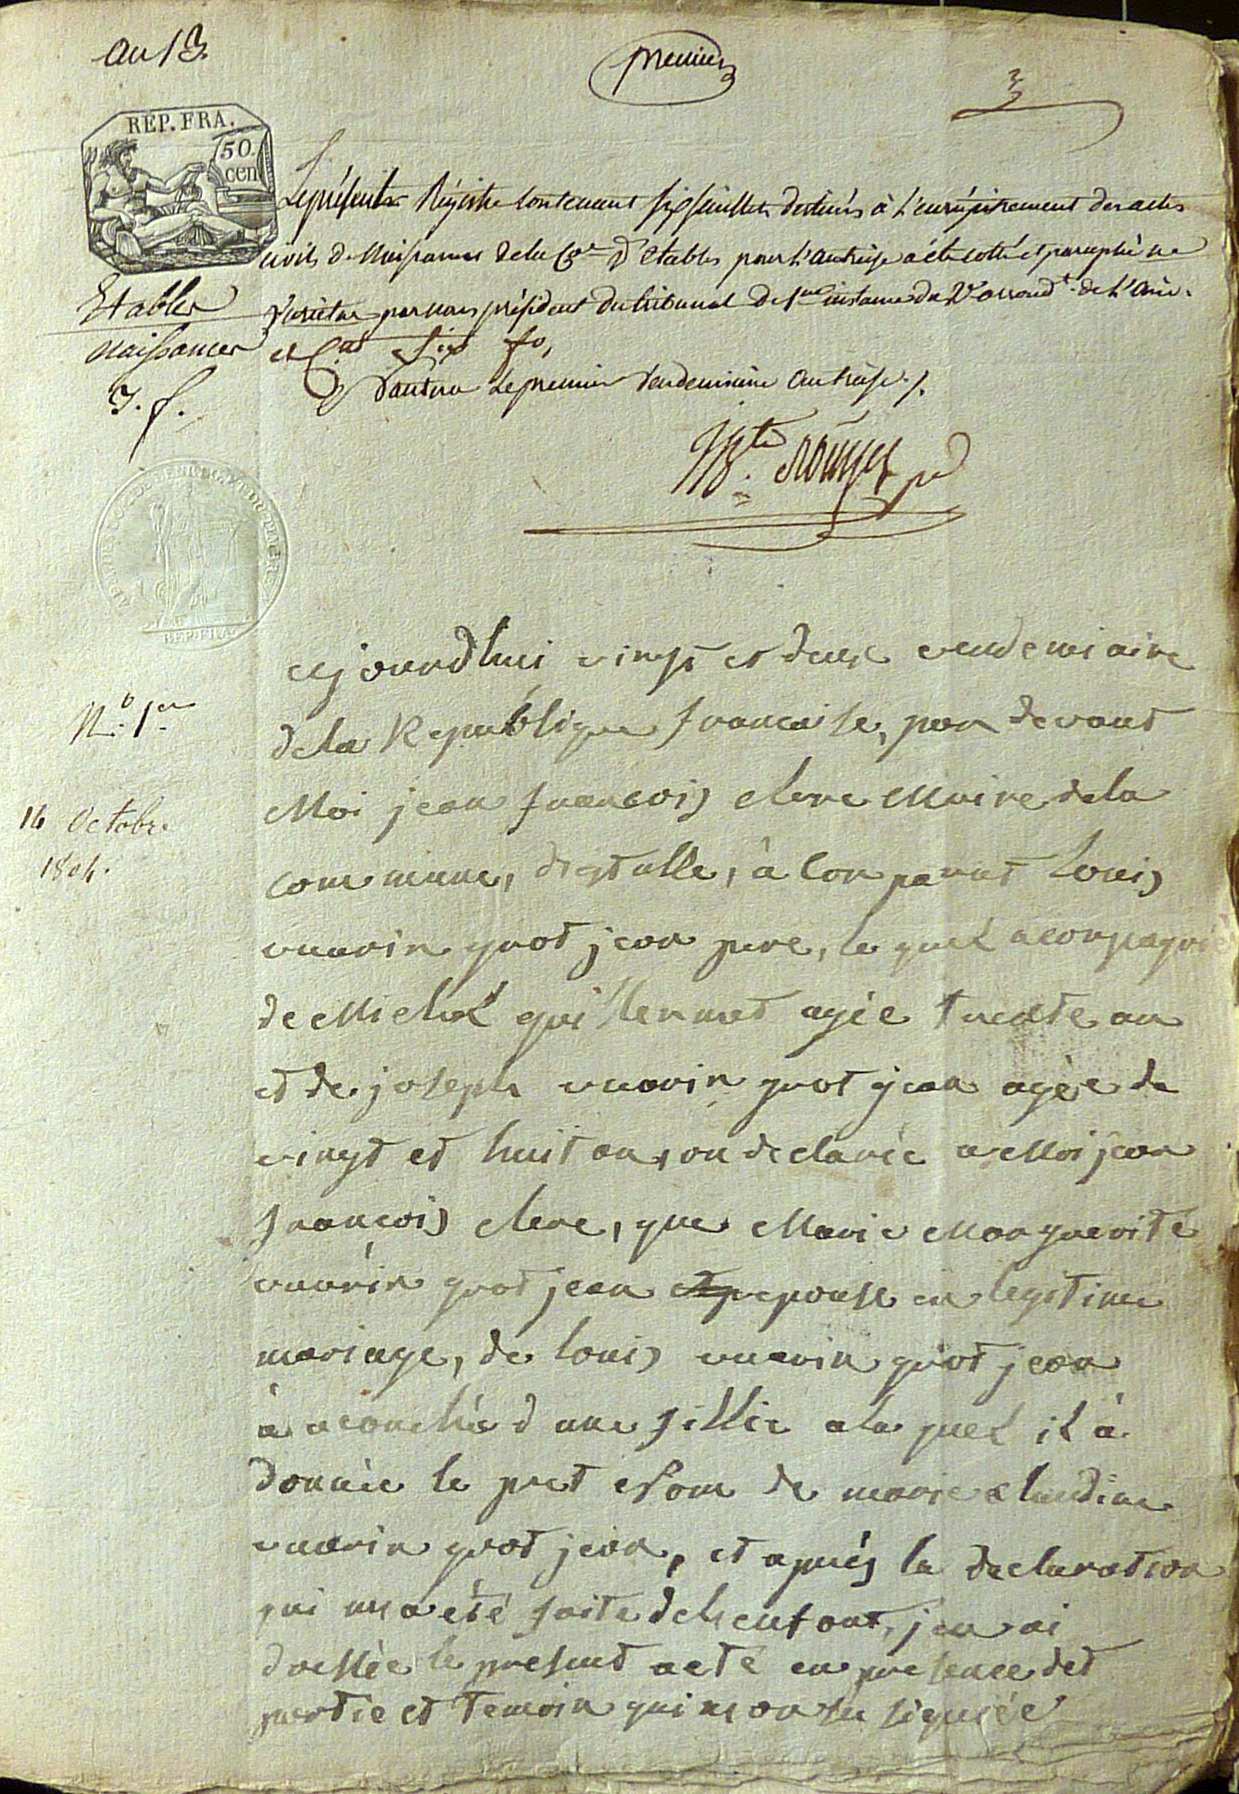 an 13
premier
3
REP. FRA.
50 cen
Etables
naissances
3. f.
Le présent Régistre contenant six feuillets destinés à l'enregistrement des actes
civils de Naissances de la Cne d'Etables pour l'an treise a été cotté et paraphé ne
varietur par nous président du tribunal de 1ere instance du 2e arrondt. de l'Ain.
six fo,
Nantua Le premier Vendemiaire an treise ./.
REP. FRA.
N.o 1er
16 Octobre
1804.
aujourdhui vingt et deux vendemiaire
de la Republique francaise, par devant
Moi jean francois clerc Maire de la
commune, destable, à Comparut Louis
vuarin quot jean pere, le quel acompagnie
de Michel qui lermet agée trente an
et de joseph vuarin quot jean agée de
vingt et huit an, on declarée a Moi jean
francois clerc, que Marie Marguerite
vuarin quot jean epouse en legitime
mariage, de louis vuarin quot jean
à acouchée d une fillie a la quel il à
donnée le pret Nom de marie claudine
vuarin quot jean, et après la declaration
qui ma été faite de lenfant, jen ai
dressée le present acte en presence det
partie et temoin qui mon su signiée